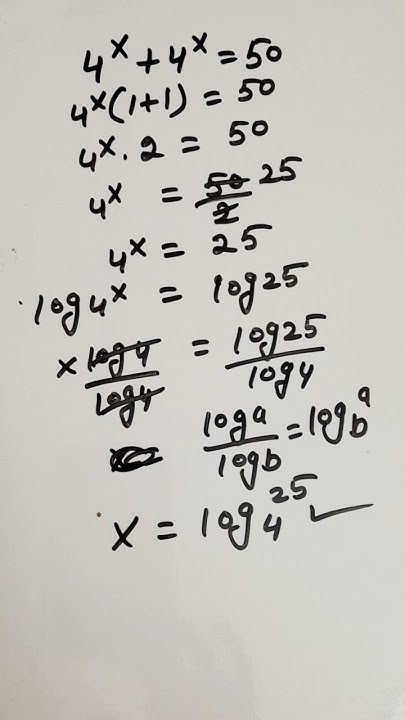 4^x + 4^x = 50
4^x(1+1) = 50
4^x · 2 = 50
4^x = 50/2 25
4^x = 25
log 4^x = log 25
x log 4 / log 4 = log 25 / log 4
log a / log b = log_b a
x = log_4 25 ✓